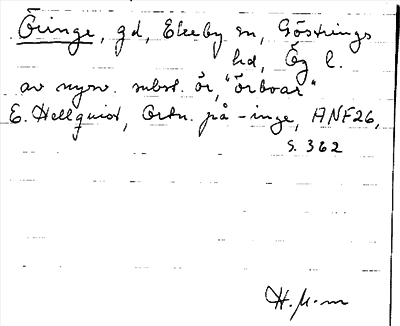 Öringe, gd, Ekeby sn, Göstrings
hd, Ög l.
av nysv. subst. ör, "örboar"
E. Hellquist, Ortn. på -inge, ANF 26,
s. 362